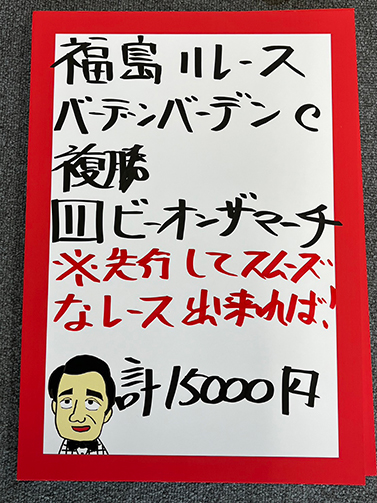 福島11レース
バーデンバーデンC
複勝
11 ビーオンザマーチ
※先行してスムーズ
なレース出来れば!
計15000円